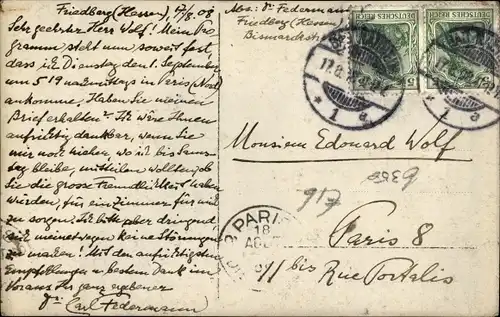 Friedberg (Hessen), 17/8. 08
Sehr geehrter Herr Wolf! Mein Pro-
gramm steht nun soweit fest,
dass ich Dienstag den 1. September,
um 5 19 nachmittags in Paris (Nord)
ankomme. Haben Sie meinen
Brief erhalten? Ich wäre Ihnen
aufrichtig dankbar, wenn Sie
mir noch hieher, wo ich bis Sams-
tag bleibe, mitteilen wollten, ob
Sie die grosse Freundlichkeit haben
würden, für ein Zimmer für mich
zu sorgen. Ich bitte aber dringend
sich meinetwegen keine Störungen
zu machen! Mit den aufrichtigsten
Empfehlungen u. bestem Dank im
Voraus Ihr ganz ergebener
Dr. Carl Federmann
Abs: Dr. Federmann
Friedberg (Hessen)
Bismarckstr.
DEUTSCHES REICH
DEUTSCHES REICH
5
5
17.8.
* 1 a
* 1 a
Monsieur Edouard Wolf
PARIS
18
AOUT
Paris 8
11 bis Rue Portalis